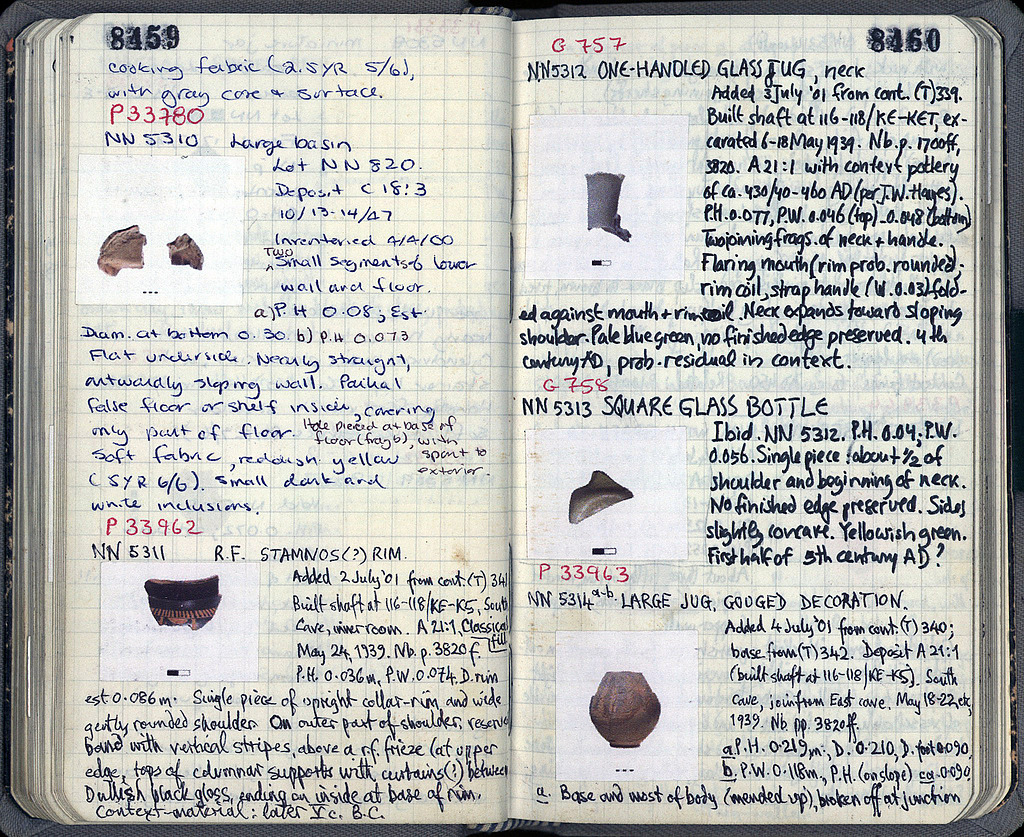 8459
cooking fabric (2.5YR 5/6),
with gray core & surface.
P 33780
NN 5310 Large basin
Lot NN 820.
Deposit C 18:3
10/13-14/47
Inventoried 4/4/00
Two
^Small segments of lower
wall and floor.
a) P.H 0.08; Est.
Diam. at bottom 0.30. b) P.H 0.073
Flat underside. Nearly straight,
outwardly sloping wall. Partial
false floor or shelf inside, covering
only part of floor. Hole pierced at base of
floor (frag b), with
Soft fabric, reddish yellow spout to
(5YR 6/6). Small dark and exterior.
white inclusions.
P 33962
NN 5311 R.F. STAMNOS(?) RIM.
Added 2 July '01 from cont. (T) 341
Built shaft at 116-118/KE-K5, South
Cave, inner room. A 21:1, Classical
fill
May 24, 1939. Nb. p. 3820 f.
P.H. 0.036m, P.W. 0.074, D. rim
est 0.086m. Single piece of upright collar-rim, and wide
gently rounded shoulder. On outer part of shoulder, reserved
band with vertical stripes, above a r.f. frieze (at upper
edge, tops of columnar supports with curtains(?) between
Dullish black gloss, ending on inside at base of rim.
Context-material: later V c. B.C.
8460
G 757
NN5312 ONE-HANDLED GLASS JUG, neck
Added 3 July '01 from cont. (T)339.
Built shaft at 116-118/KE-KET, ex-
cavated 6-18 May 1939. Nb. p. 1700ff,
3820. A 21:1 with context pottery
of ca. 430/40-460 AD (per J.W. Hayes).
P.H. 0.077, P.W. 0.046 (top) -0.048 (bottom)
Two joining frags. of neck + handle.
Flaring mouth (rim prob. rounded);
rim coil, strap handle (W. 0.03) fold-
ed against mouth + rim coil. Neck expands toward sloping
shoulder. Pale blue green, no finished edge preserved. 4th
century AD, prob. residual in context.
G 758
NN 5313 SQUARE GLASS BOTTLE
Ibid. NN 5312. P.H. 0.04; P.W.
0.056. Single piece: about 1/2 of
shoulder and beginning of neck.
No finished edge preserved. Sides
slightly concave. Yellowish green.
First half of 5th century AD?
P 33963
NN 5314 a-b. LARGE JUG, GOUGED DECORATION.
Added 4 July '01 from cont. (T) 340;
base from (T) 342. Deposit A 21:1
(built shaft at 116-118/KE-K5). South
cave, join from East cave. May 18-22 etc,
1939. Nb pp. 3820ff.
a. P.H. 0.219m; D. 0.210, D. foot 0.090,
b. P.W. 0.118m., P.H. (on slope) ca. 0.090,
a. Base and most of body (mended up), broken off at junction